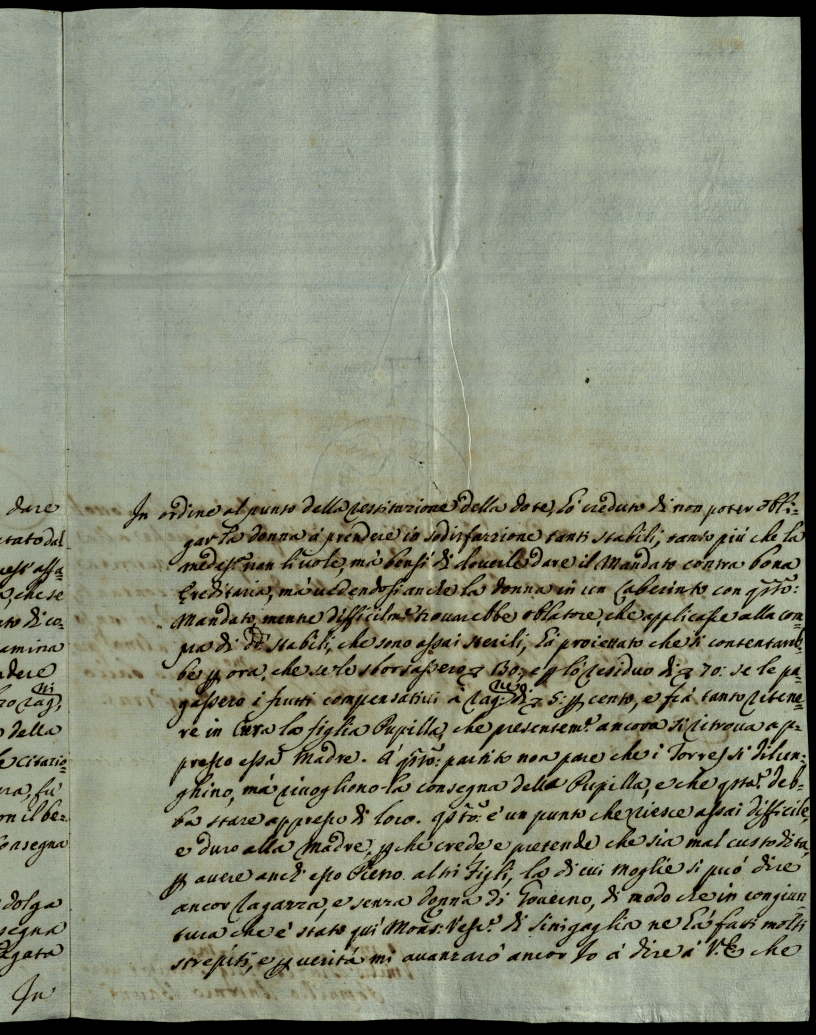 dare
tato dal
quest' assa=
a, che se
to di co=
amina
ndere
ro rag.ni
della
le citatio=
ra, fù
on il be=
Consegna
dolga
segna
agata
In
In ordine al punto della restituzione della dote, hò creduto di non poter obli=
gar la donna à prendere in sodisfazzione tanti stabili, tanto più che la
medes.a non li vole, mà bensì di doverle dare il Mandato contra bona
hereditaria, mà vedendosi anche la donna in un laberinto con q̃sto:
Mandato, mentre difficilm.te trovarebbe oblatore, che applicasse alla com=
pra di d.i stabili, che sono assai sterili, hà proiettato che si contentareb=
be p ora, che se le sborsassero 130:, e p lo residuo di 70: se le pa=
gassero i frutti compensativi à rag.ne di 5: p cento, e frà tanto ritene=
re in Cura la figlia Pupilla, che presentem.e ancora si ritrova ap=
presso essa Madre. A' q̃sto: partito non pare che i Torresi si dilun=
ghino, mà rivogliono la consegna della Pupilla, e che q̃sta: deb=
ba stare appresso di loro. q̃sto: è un punto che riesce assai difficile,
e duro alla Madre, p che crede e pretende che sia mal custodita,
p avere anch' esso Pietro altri figli, la di cui moglie si può dire
ancor ragazza, e senza donna di Governo, di modo che in congiun
tura che è stato quì Mons.r Vesc.o di Sinigaglia ne hà fatti molti
strepiti, e p verità mi avanzarò ancor Io à dire à V.E. che